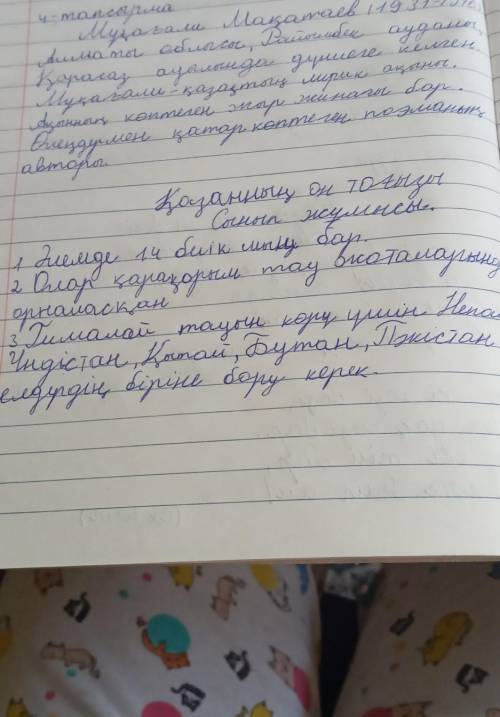 4-тапсырма
Мұқағали Мақатаев (1931-
Алматы облысы, Райымбек ауданы,
Қарасаз ауылында дүниеге келген.
Мұқағали-қазақтың лирик ақыны.
Ақынның көптеген жыр жинағы бар.
Өлеңдермен қатар көптеген поэманың
авторы.
Қазанның он тоғызы
Сынып жұмысы.
1 Әлемде 14 биік шың бар.
2 Олар қарақорым тау жоталарында
орналасқан
3. Гималай тауын көру үшін Непал
Үндістан, Қытай, Бутан, Пәкістан
елдердің біріне бару керек.